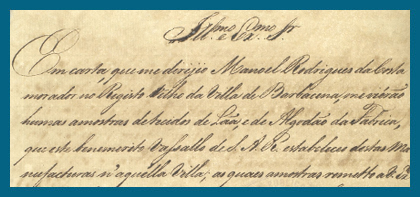 Ill.mo e Ex.mo Sr.
Em carta, que me dirijio Manoel Rodrigues da Costa
morador no Registo Velho da Villa de Barbacena, me vierão
humas amostras de tecidos de Lãa, e de Algodão da Fabrica,
que este benemerito Vassallo de S. A. R. estabeleceo destas Ma
nufacturas n'aquella Villa; as quaes amostras remetto a V. Ex